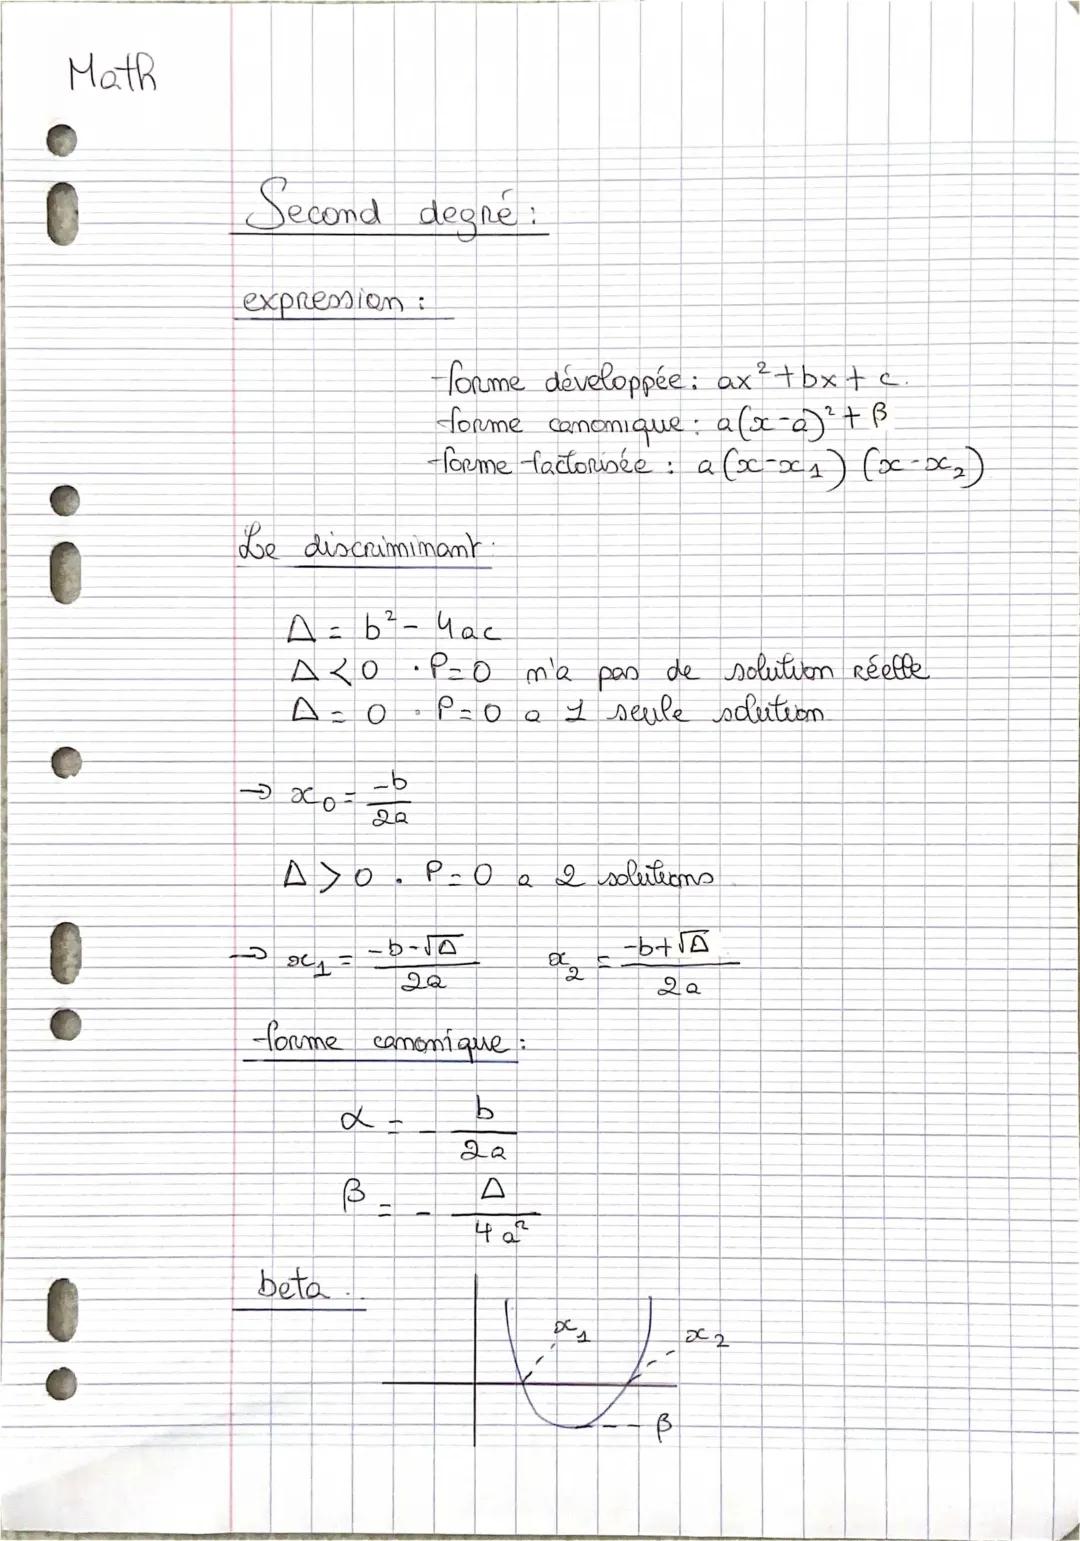 Math
Second degré :
expression :
-forme développée : ax²+bx+c.
-forme canonique : a(x-a)²+β
-forme factorisée : a(x-x₁)(x-x₂)
Le discriminant :
Δ = b² - 4ac
Δ<0 · P=0 n'a pas de solution réelle
Δ=0 · P=0 a 1 seule solution
→ x₀ = -b/2a
Δ>0 . P=0 a 2 solutions
→ x₁ = -b-√Δ/2a x₂ = -b+√Δ/2a
forme canonique :
α = - b/2a
β = - Δ/4a²
beta :
x₁ x₂
β